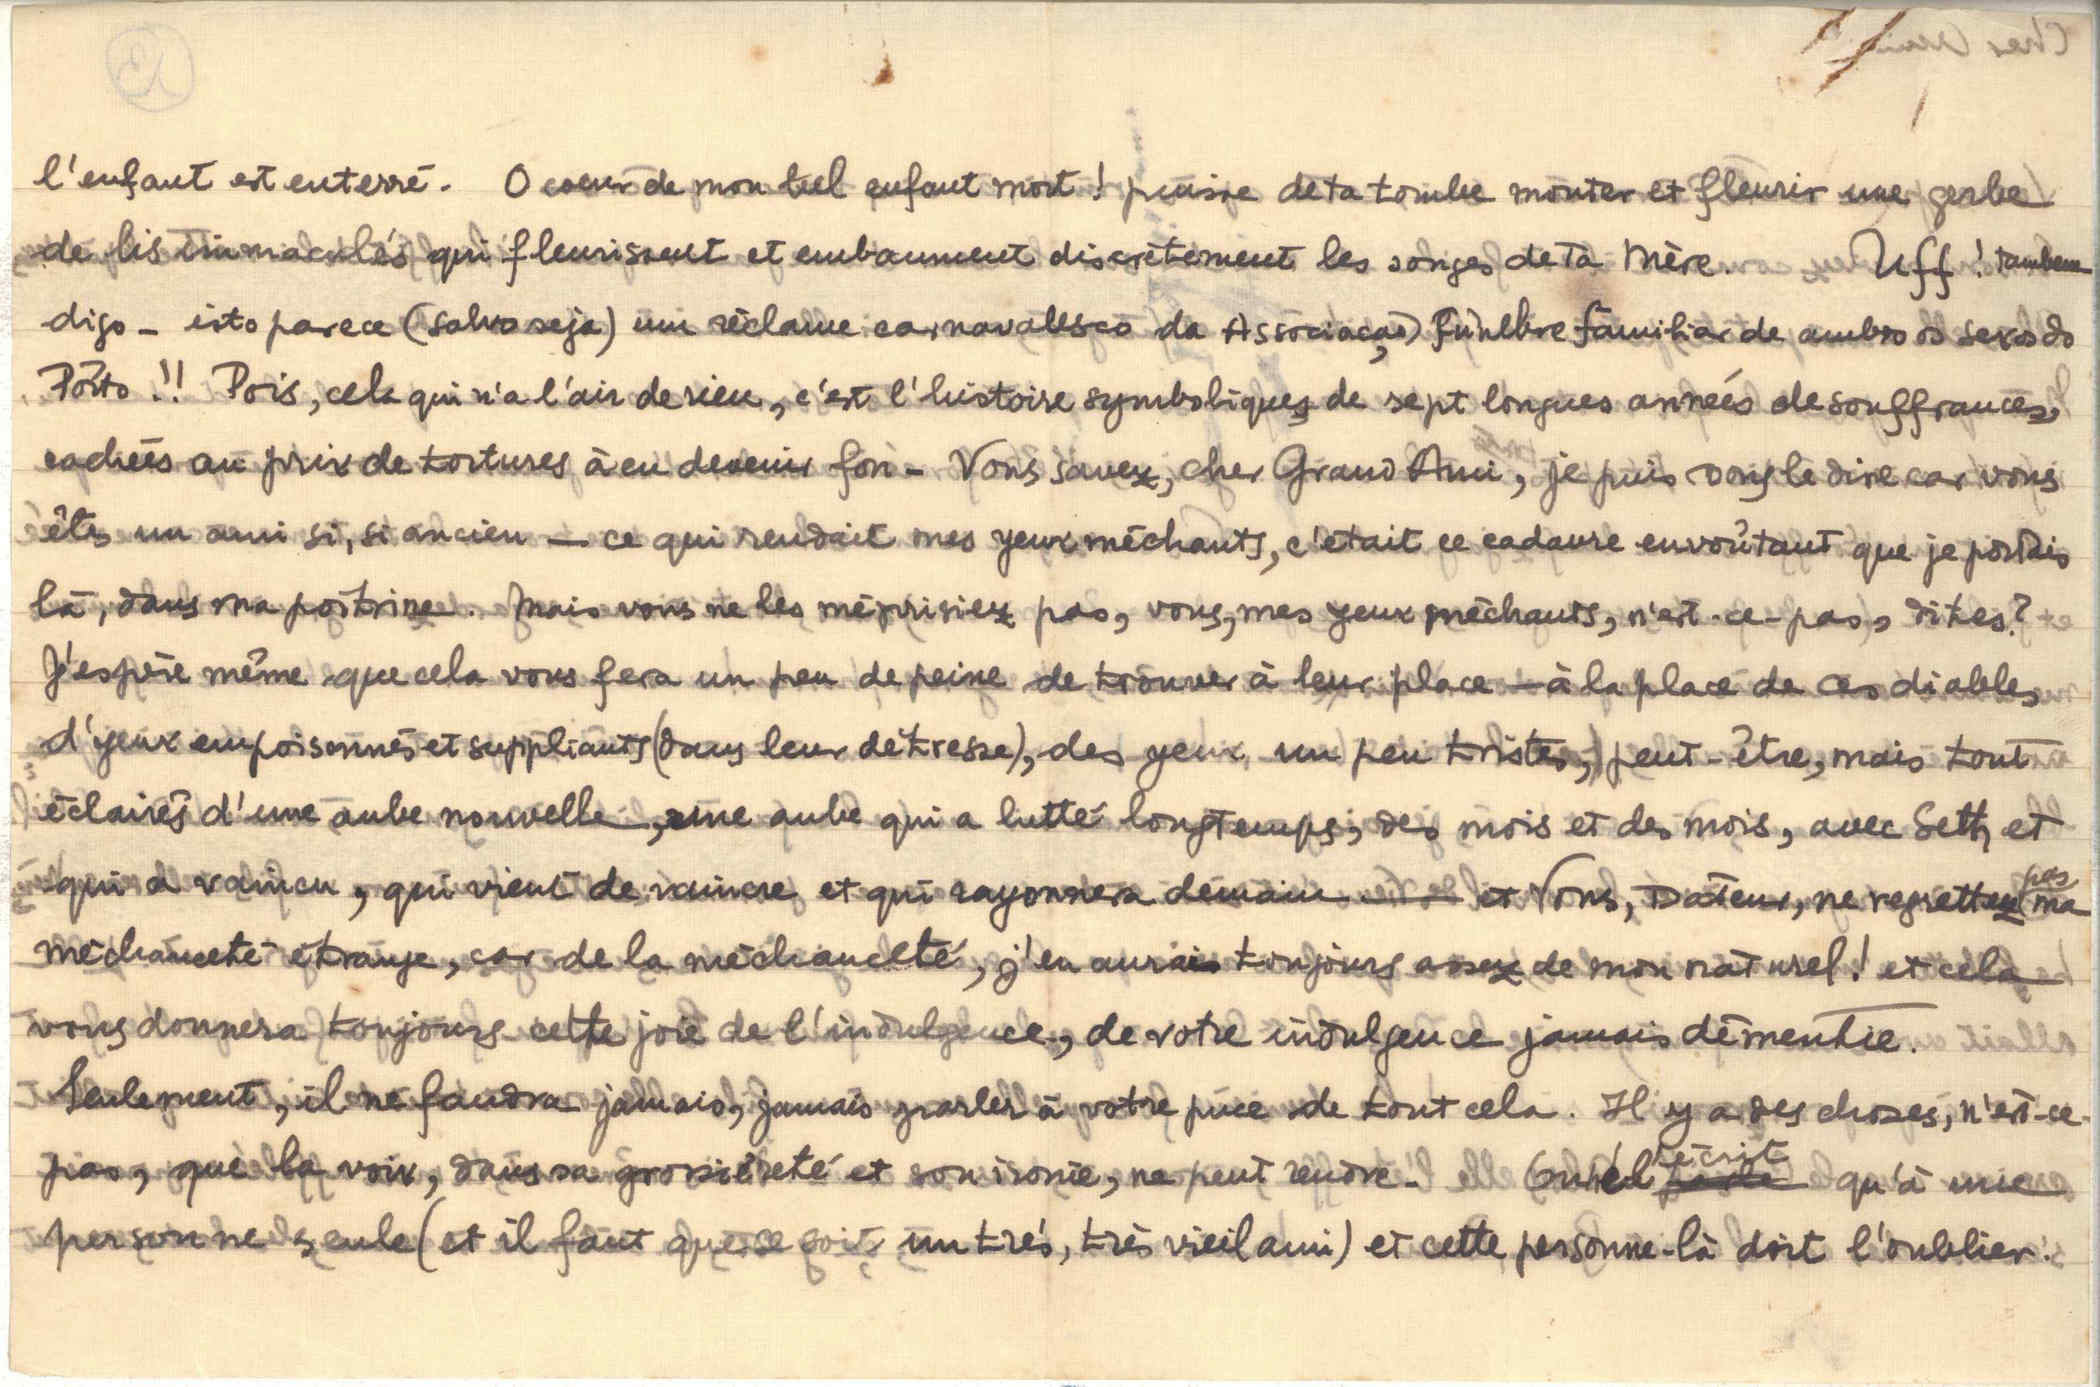 l'enfant est enterré. O coeur de mon bel enfant mort! puisse de ta tombe monter et fleurir une gerbe
de lis immaculés qui fleurissent et embaument discrètement les songes de ta Mère. Uff! tambem
digo - isto parece (salvo seja) um réclame carnavalesco da Associação Fúnebre familiar de ambos os sexos do
Pôrto!! Pois, cela qui n'a l'air de rien, c'est l'histoire symbolique de sept longues années de souffrances,
cachées au prix de tortures à en devenir fou - Vous savez, cher Grand Ami, je puis vous le dire car vous
êtes un ami si, si ancien — ce qui rendait mes yeux méchants, c'était ce cadavre envoûtant que je portais
là, dans ma poitrine. Mais vous ne les méprisiez pas, vous, mes yeux méchants, n'est-ce-pas, dites?
J'espère même que cela vous fera un peu de peine de trouver à leur place — à la place de ces diables
d'yeux empoisonnés et suppliants (dans leur détresse), des yeux un peu tristes, peut-être, mais tout
éclairés d'une aube nouvelle, une aube qui a lutté longtemps, des mois et des mois, avec Seth et
qui a vaincu, qui vient de vaincre et qui rayonnera demain — et Vous, Dateur, ne regrettez pas ma
méchanceté étrange, car de la méchanceté, j'en aurais toujours assez de mon naturel! et cela
vous donnera toujours cette joie de l'indulgence, de votre indulgence jamais démentie.
Seulement, il ne faudra jamais, jamais parler à votre puce de tout cela. Il y a des choses, n'est-ce-
pas, que la voix, dans sa grossièreté et son ironie, ne peut rendre. On n'écrit qu'à une
personne seule (et il faut que ce soit un très, très vieil ami) et cette personne-là doit l'oublier.